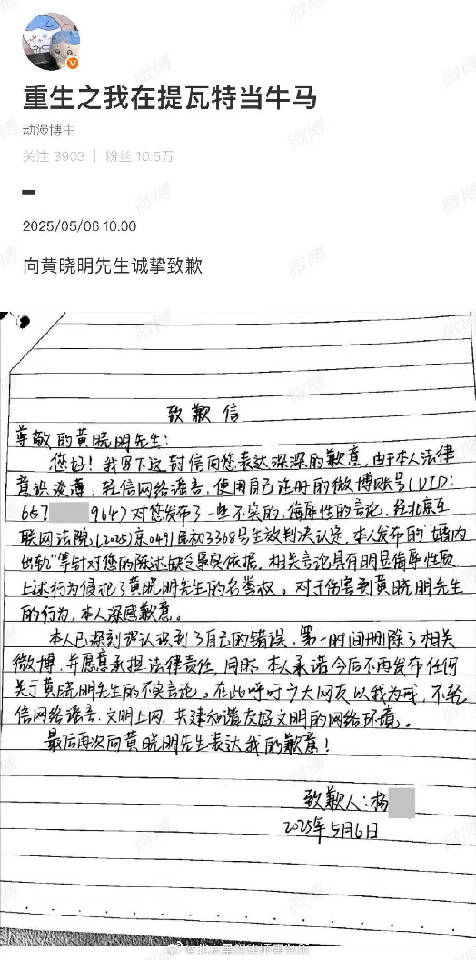 重生之我在提瓦特当牛马
动漫博主
关注 3903 | 粉丝 10.5万
2025/05/06 10:00
向黄晓明先生诚挚致歉
致歉信
尊敬的黄晓明先生:
您好!我写下这封信向您表达深深的歉意,由于本人法律
意识淡薄,轻信网络谣言,使用自己注册的微博账号(UID:
657 964)对您发布了一些不实的、侮辱性的言论,经北京互
联网法院(2025)京0491民初3368号生效判决认定,本人发布的"婚内
出轨"等针对您的陈述缺乏事实依据,相关言论具有明显侮辱性质
上述行为侵犯了黄晓明先生的名誉权,对于伤害到黄晓明先生
的行为,本人深感歉意。
本人已深刻地认识到了自己的错误,第一时间删除了相关
微博,并愿意承担法律责任,同时,本人承诺今后不再发布任何
关于黄晓明先生的不实言论。在此呼吁广大网友以我为戒,不轻
信网络谣言,文明上网,共建和谐友好文明的网络环境。
最后再次向黄晓明先生表达我的歉意!
致歉人:杨
2025年5月6日